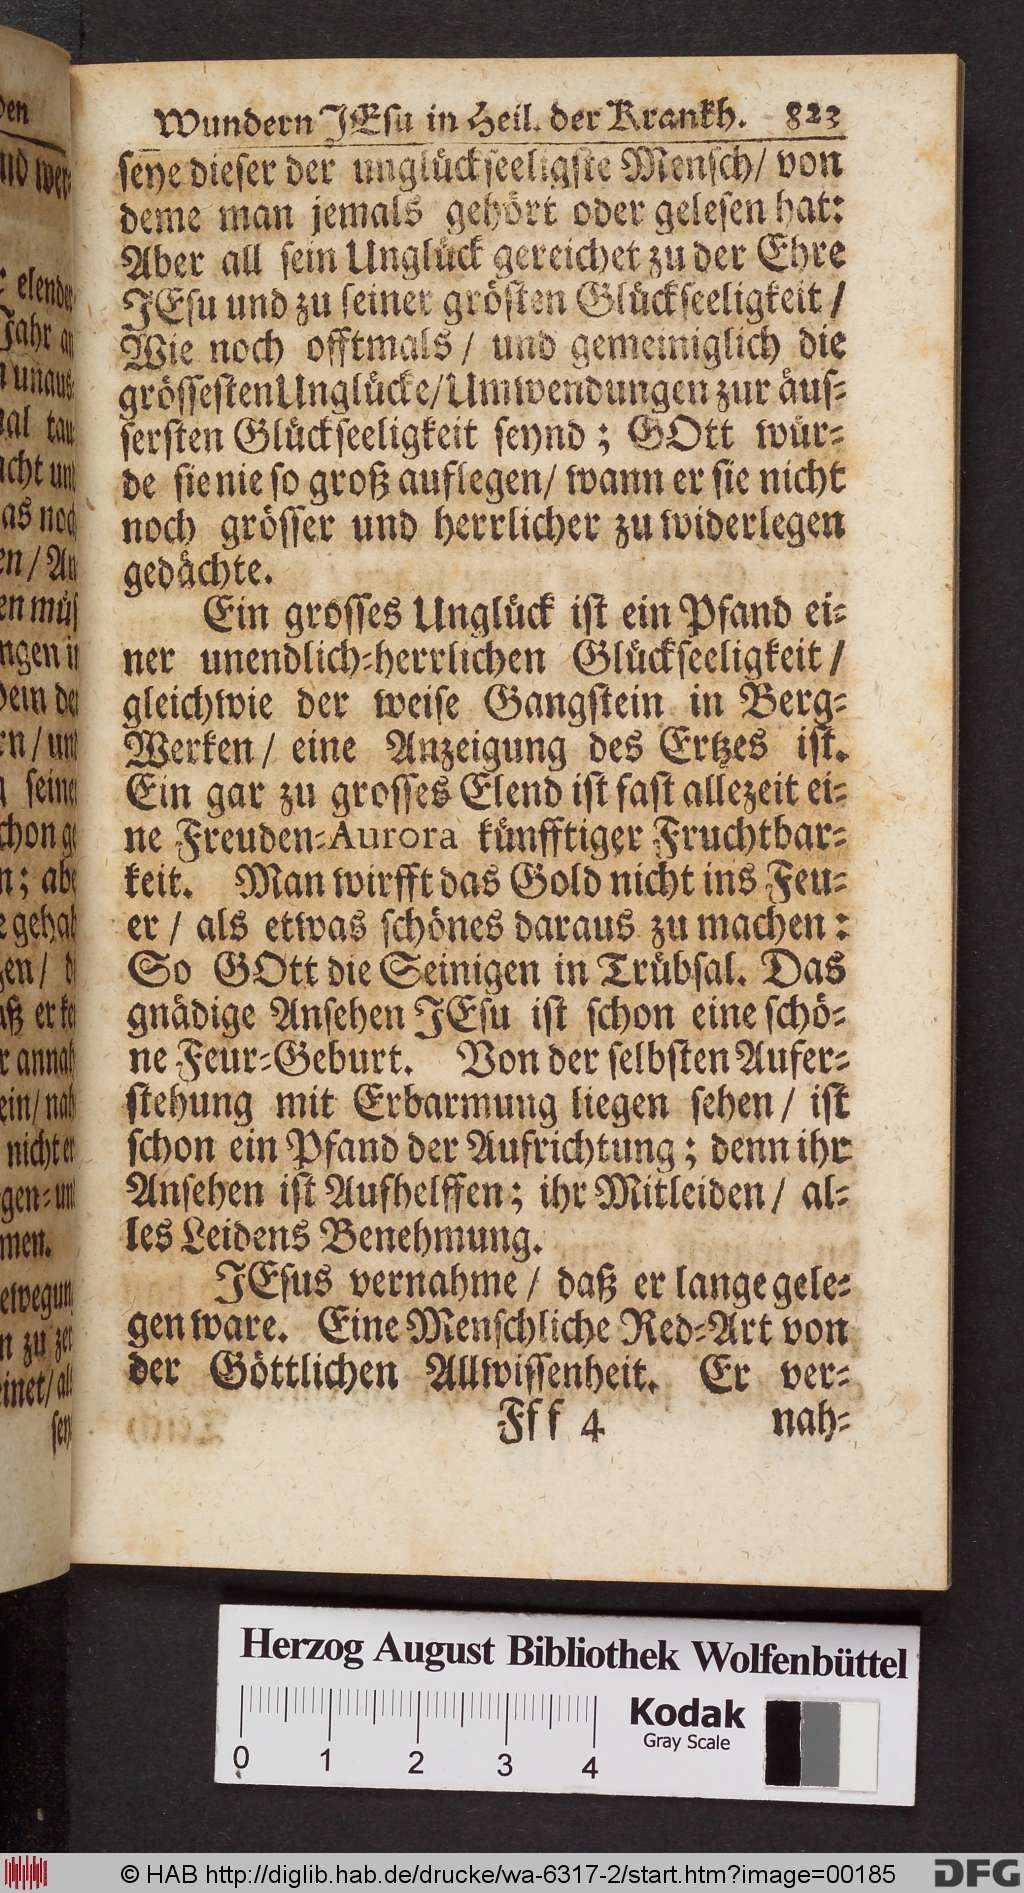 Wundern JEsu in Heil. der Krankh. 823
seye dieser der unglückseeligste Mensch/ von
deme man jemals gehört oder gelesen hat:
Aber all sein Unglück gereichet zu der Ehre
JEsu und zu seiner grösten Glückseeligkeit/
Wie noch offtmals/ und gemeiniglich die
grössesten Unglücke/ Umwendungen zur äus-
sersten Glückseeligkeit seynd; GOtt wür-
de sie nie so groß auflegen/ wann er sie nicht
noch grösser und herrlicher zu widerlegen
gedächte.
Ein grosses Unglück ist ein Pfand ei-
ner unendlich-herrlichen Glückseeligkeit/
gleichwie der weise Gangstein in Berg-
Werken/ eine Anzeigung des Ertzes ist.
Ein gar zu grosses Elend ist fast allezeit ei-
ne Freuden-Aurora künfftiger Fruchtbar-
keit. Man wirfft das Gold nicht ins Feu-
er/ als etwas schönes daraus zu machen:
So GOtt die Seinigen in Trübsal. Das
gnädige Ansehen JEsu ist schon eine schö-
ne Feur-Geburt. Von der selbsten Aufer-
stehung mit Erbarmung liegen sehen/ ist
schon ein Pfand der Aufrichtung; denn ihr
Ansehen ist Aufhelffen; ihr Mitleiden/ al-
les Leidens Benehmung.
JEsus vernahme/ daß er lange gele-
gen ware. Eine Menschliche Red-Art von
der Göttlichen Allwissenheit. Er ver-
Fff 4 nah-
Herzog August Bibliothek Wolfenbüttel
Kodak
Gray Scale
0 1 2 3 4
© HAB http://diglib.hab.de/drucke/wa-6317-2/start.htm?image=00185
DFG